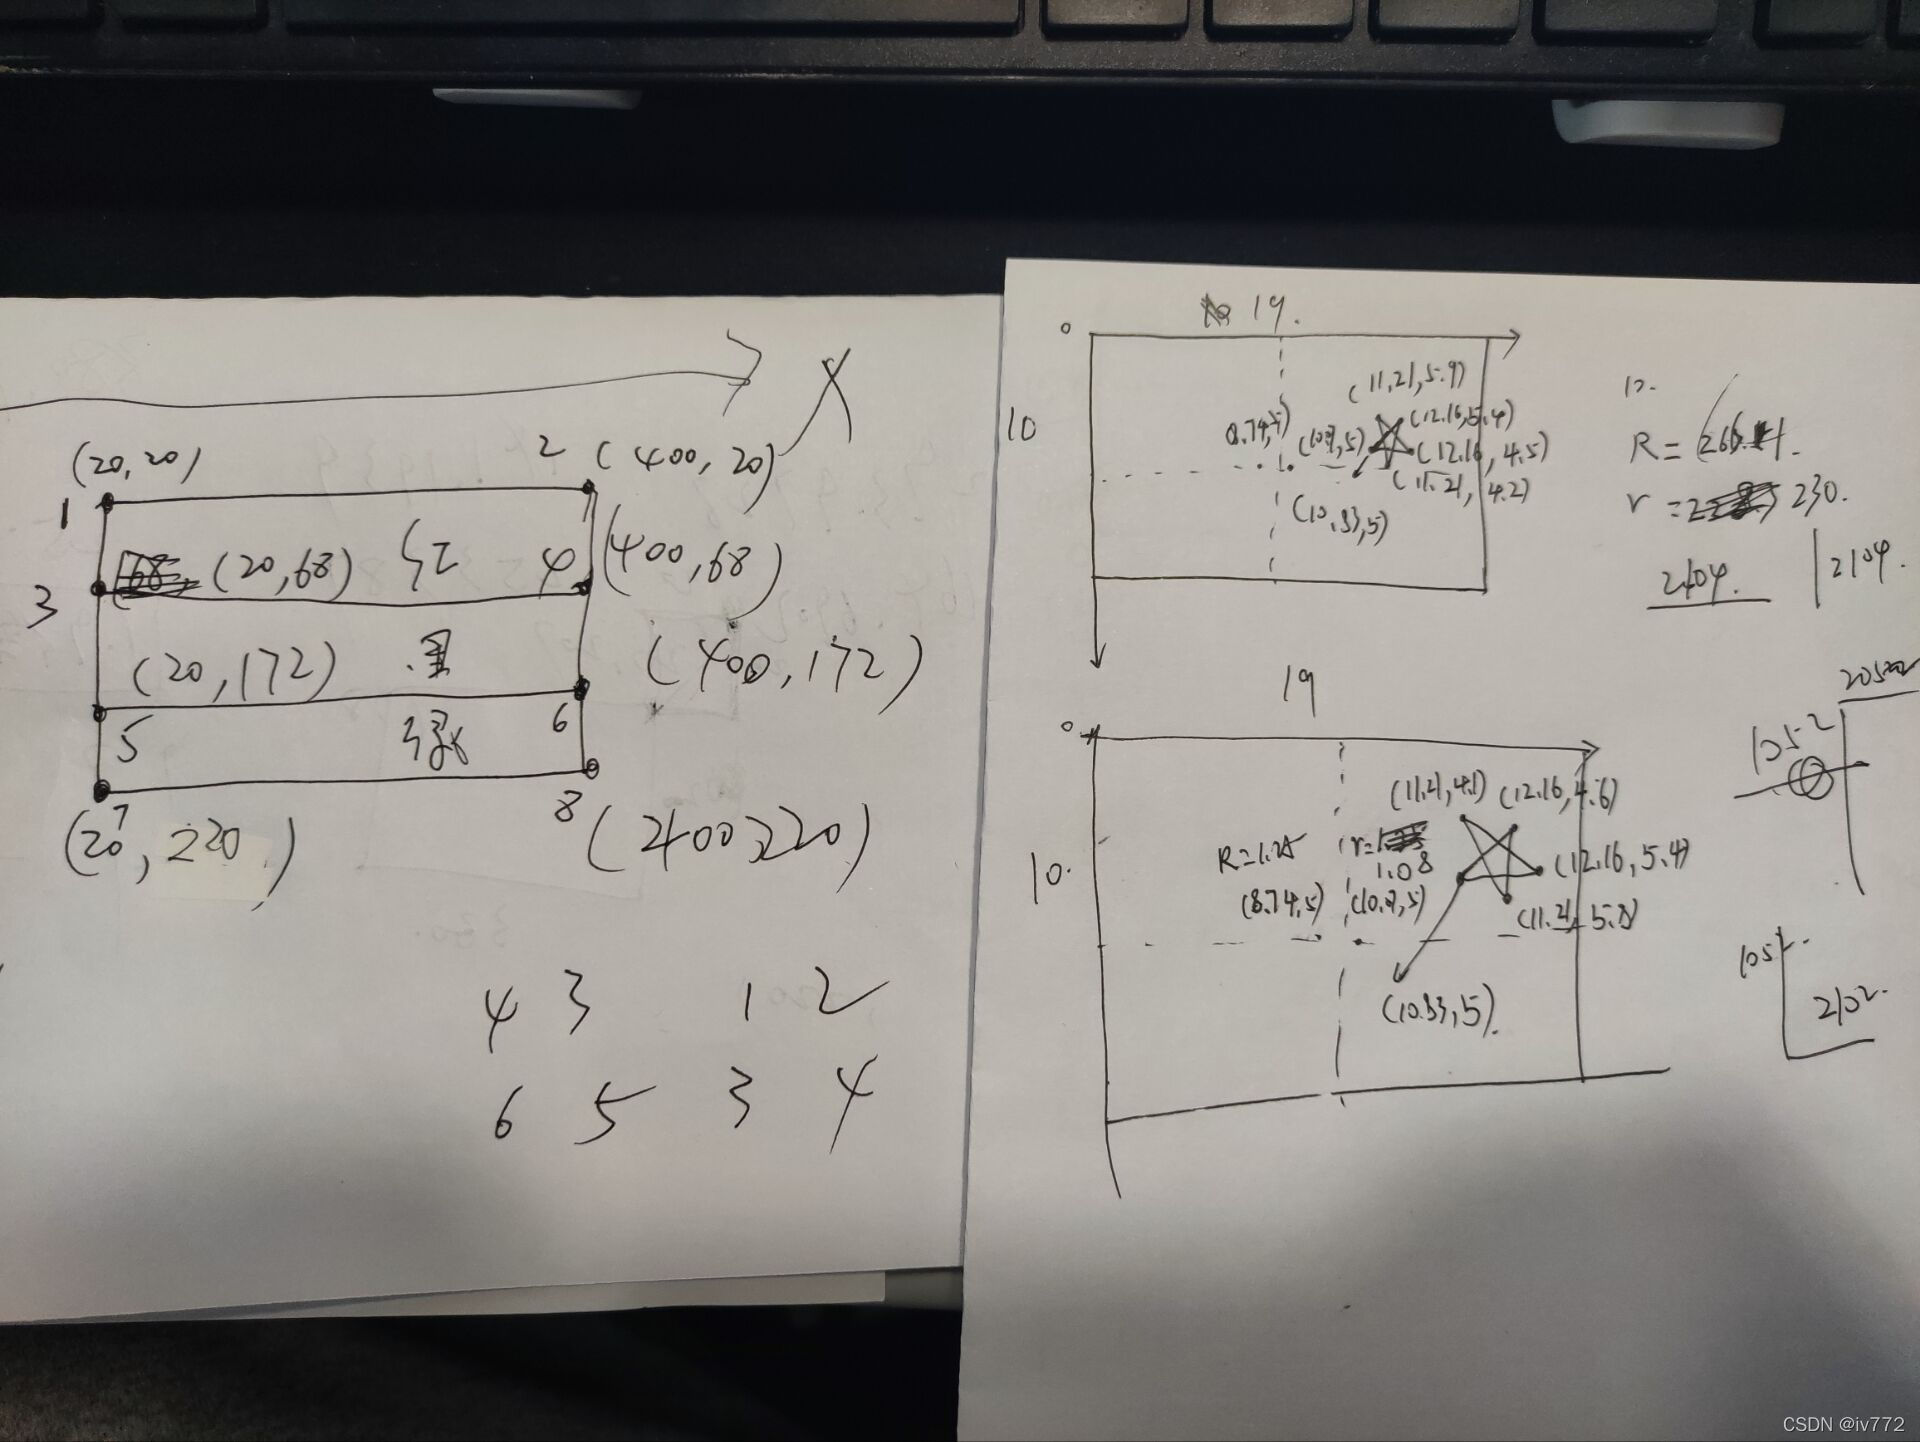 X
(20,20)
2 (400,20)
1
(20,68) 红 4 (400,68)
3
(20,172) 黑 (400,172)
5 绿 6
7 8
(20,220) (400,220)
4 3 1 2
6 5 3 4
19.
0
10
(11.21,5.9)
(12.16,5.4)
(8.74,5) (10.7,5)
(12.16,4.5)
(11.21,4.2)
(10.33,5)
12.
R=
r= 230.
2104. 2104.
19
0
10.
(11.21,4.1) (12.16,4.6)
R=1.25 r=
1.08
(12.16,5.4)
(8.74,5) (10.7,5)
(10.33,5).
1052
1052.
2102.
CSDN @iv772